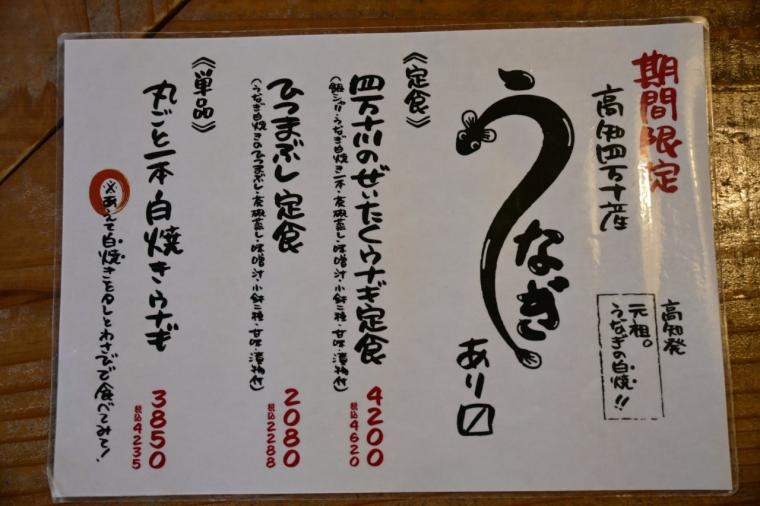 期間限定
高知四万十産
高知発
元祖。
うなぎの白焼!!
うなぎ
あり〼
《定食》
四万十川のぜいたくウナギ定食
4200
税込4620
(銀シャリ・うなぎ白焼き一本・茶椀蒸し・味噌汁・小鉢二種・甘味・漬物付)
ひつまぶし定食
2080
税込2288
(うなぎ白焼きのひつまぶし・茶椀蒸し・味噌汁・小鉢二種・甘味・漬物付)
《単品》
丸ごと一本白焼きウナギ
3850
税込4235
※あえて白焼きをタレとわさびで食べてみて!